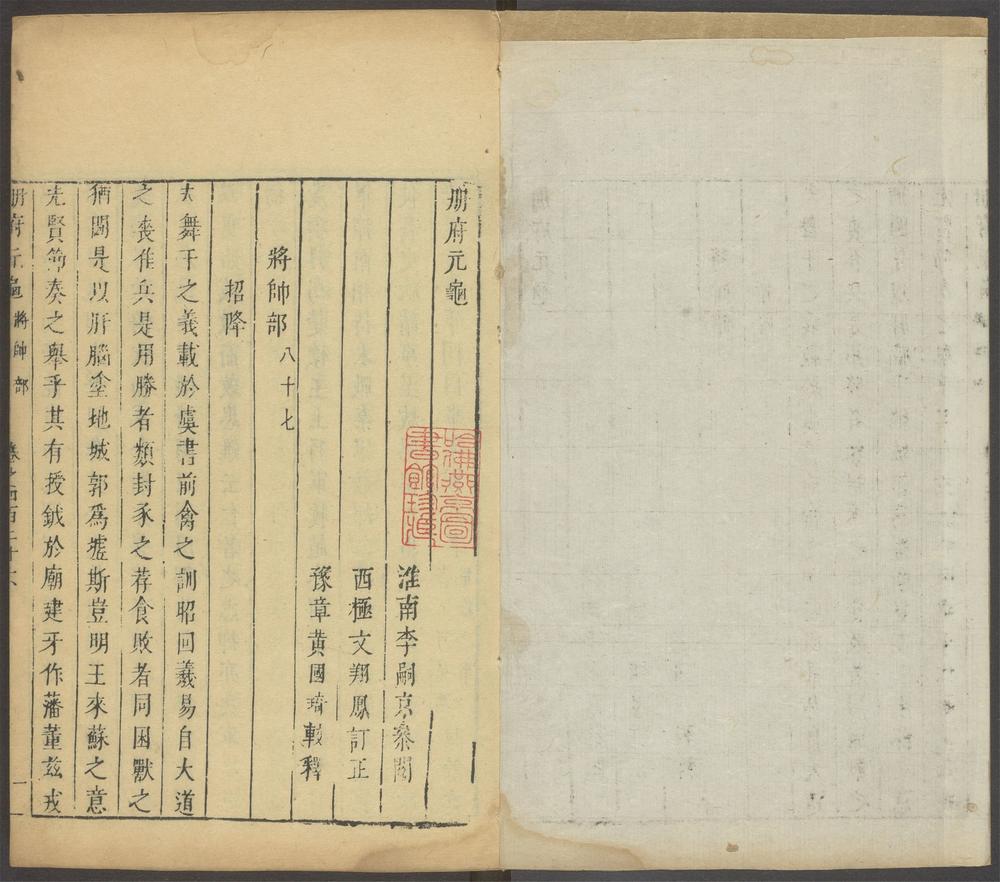 册府元龜
淮南李嗣京叅閱
西極文翔鳳訂正
豫章黃國琦較釋
將帥部 八十七
招降
夫舞干之義載於虞書前禽之訓昭回羲易自大道
之喪隹兵是用勝者類封豕之荐食敗者同困獸之
猶鬪是以肝腦塗地城郭爲墟斯豈明王來蘇之意
先賢節奏之舉乎其有授鉞於廟建牙作藩董兹戎
册府元龜 將帥部 卷之四百二十六 一
哈佛燕京圖書館珍藏